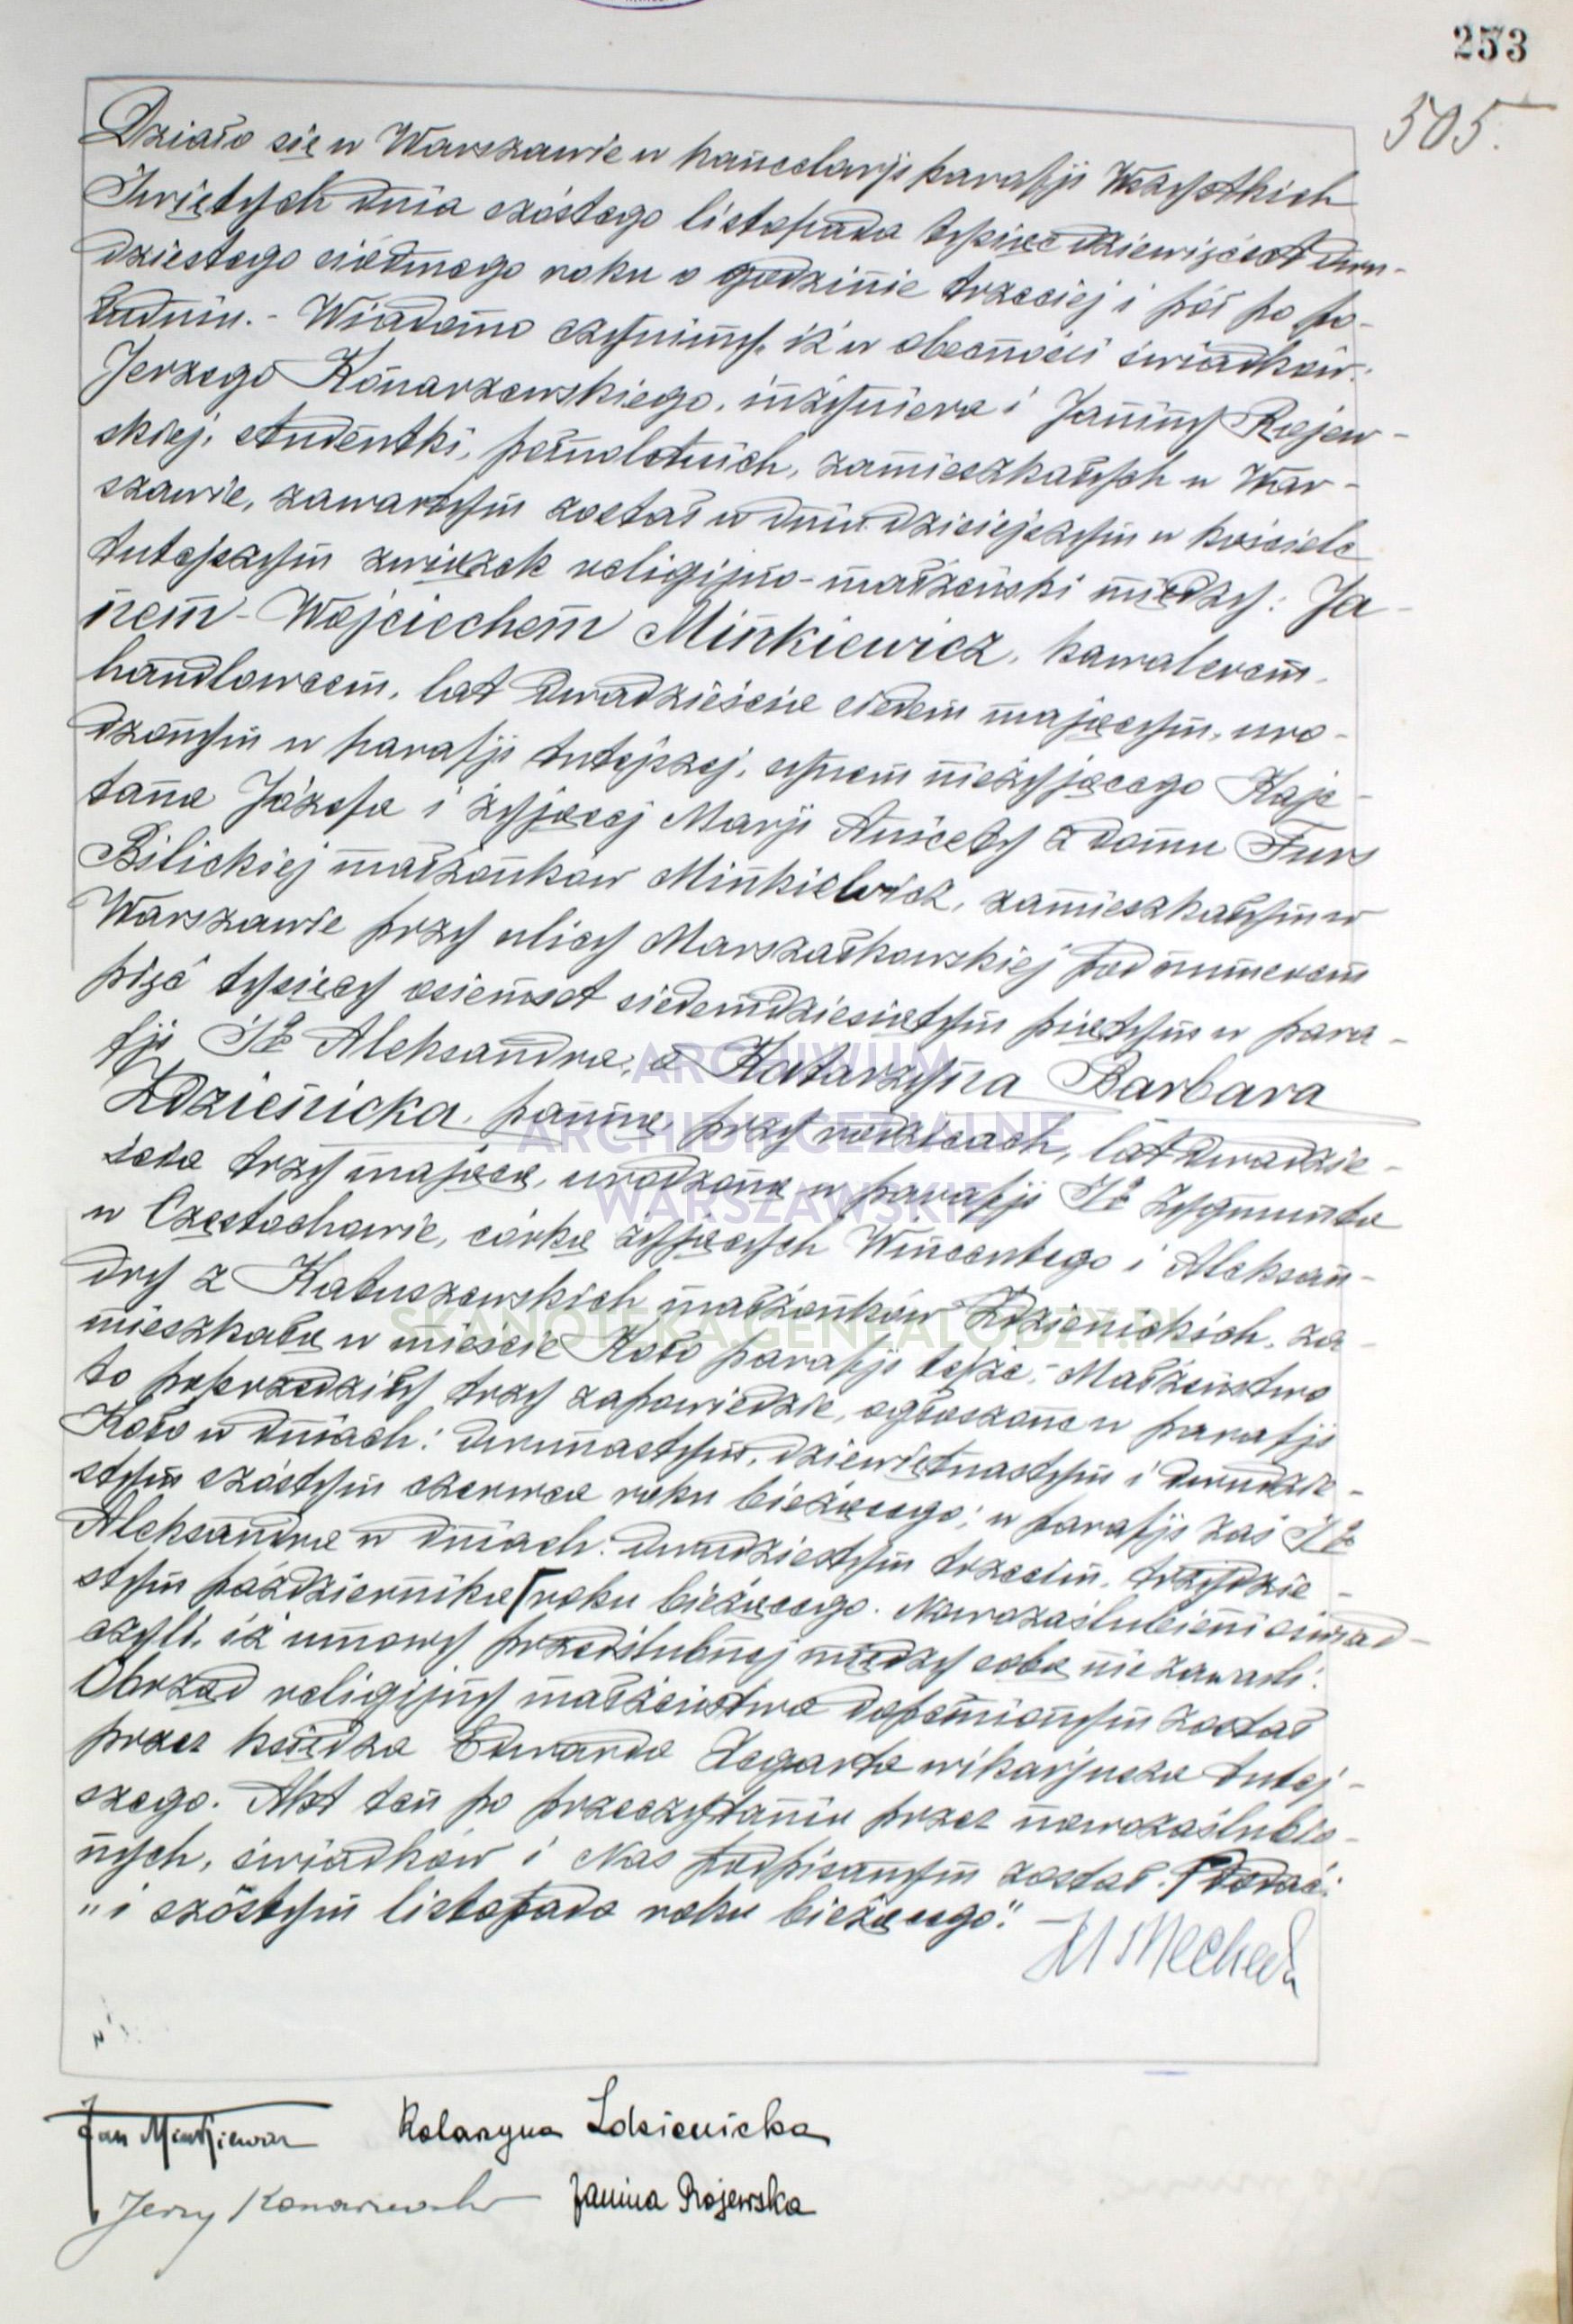 253
505.
Działo się w Warszawie w kancelarji parafji Wszystkich
Świętych dnia szóstego listopada tysiąc dziewięćset dwu-
dziestego siódmego roku o godzinie trzeciej i pół po po-
łudniu. - Wiadomo czynimy, iż w obecności świadków:
Jerzego Konarzewskiego, inżyniera i Janiny Rojew-
skiej, studentki, pełnoletnich, zamieszkałych w War-
szawie, zawartym został w dniu dzisiejszym w kościele
tutejszym związek religijno-małżeński między: Ja-
nem-Wojciechem Minkiewicz, kawalerem,
handlowcem, lat dwadzieścia siedem mającym, uro-
dzonym w parafji tutejszej, synem nieżyjącego Kaje-
tana Józefa i żyjącej Marji Anicety z domu Furs
Bilickiej małżonków Minkiewicz, zamieszkałym w
Warszawie przy ulicy Marszałkowskiej pod numerem
pięć tysięcy osiemset siedemdziesiątym piątym w para-
fji Śgo Aleksandra, a Katarzyną Barbarą
Zdzienicką, panną przy rodzicach, lat dwadzie-
ścia trzy mającą, urodzoną w parafji Śgo Zygmunta
w Częstochowie, córką żyjących Wincentego i Aleksan-
dry z Kaluszewskich małżonków Zdzienickich, za-
mieszkałą w mieście Koło parafji tejże. - Małżeństwo
to poprzedziły trzy zapowiedzie, ogłoszone w parafji
Koło w dniach: dwunastym, dziewiętnastym i dwudzie-
stym szóstym czerwca roku bieżącego; w parafji zaś Śgo
Aleksandra w dniach: dwudziestym trzecim, trzydzie-
stym października roku bieżącego. Nowozaślubieni oświad-
czyli, iż umowy przedślubnej między sobą nie zawarli.
Obrząd religijny małżeństwa dopełnionym został
przez księdza Edwarda wikarjusza tutej-
szego. Akt ten po przeczytaniu przez nowozaślubio-
nych, świadków i Nas podpisanym został. dodać:
"i szóstym listopada roku bieżącego". -
Jan Minkiewicz Katarzyna Zdzienicka
Jerzy Konarzewski Janina Rojewska
ARCHIWUM
ARCHIDIECEZJALNE
WARSZAWSKIE
SKANOTEKA.GENEALODZY.PL